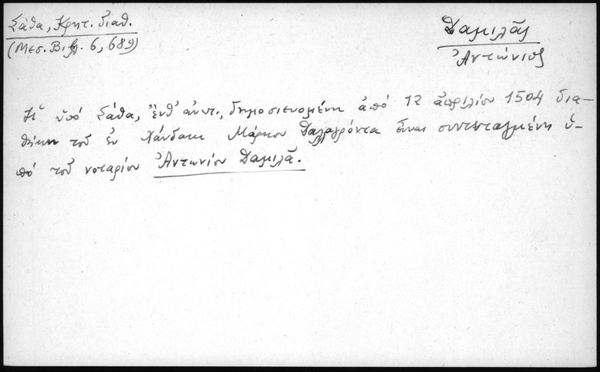 Σάθα, Κρητ. διαθ.
(Μεσ. Βιβλ. 6, 689)
Δαμιλᾶς
Ἀντώνιος
Ἡ ὑπὸ Σάθα, ἔνθ' ἀνωτ., δημοσιευομένη ἀπὸ 12 ἀπριλίου 1504 δια-
θήκη τοῦ ἐν Χάνδακι Μάρκου είναι συντεταγμένη ὑ-
πὸ τοῦ νοταρίου Ἀντωνίου Δαμιλᾶ.